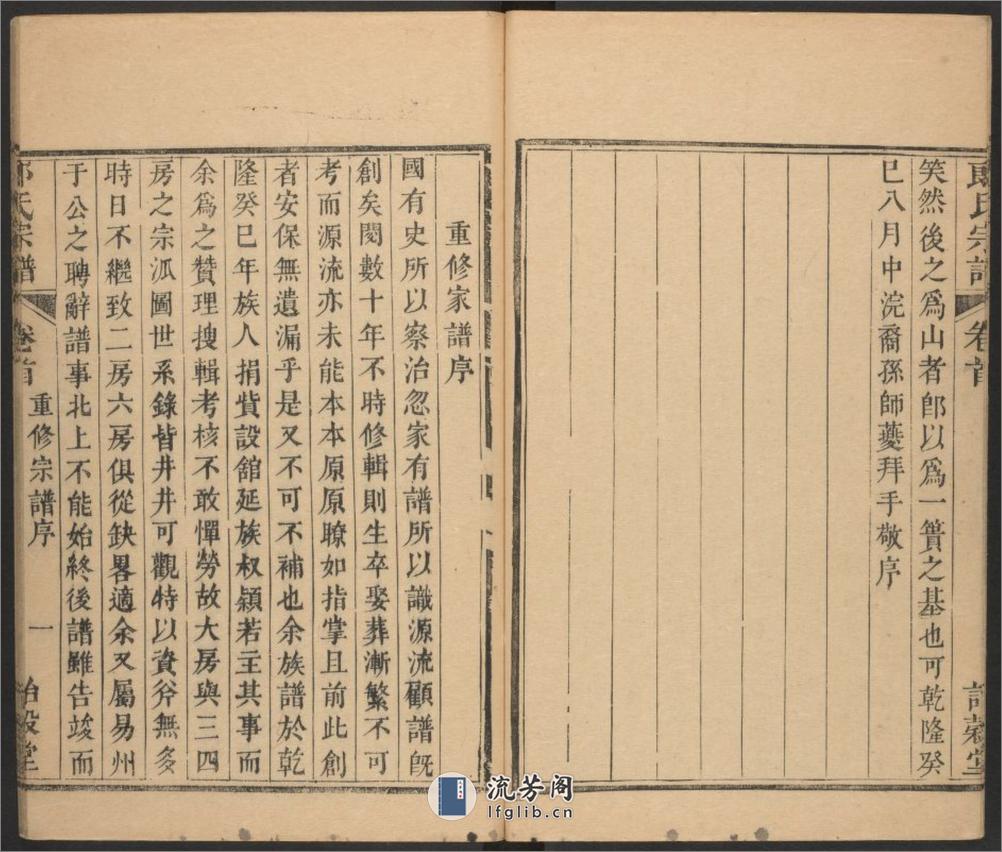 氏宗譜 卷首 詒穀堂
笑然後之為山者即以為一簣之基也可乾隆癸
巳八月中浣裔孫師夔拜手敬序
重修家譜序
國有史所以察治忽家有譜所以識源流顧譜旣
創矣閱數十年不時修輯則生卒娶葬漸繁不可
考而源流亦未能本本原原瞭如指掌且前此創
者安保無遺漏乎是又不可不補也余族譜於乾
隆癸巳年族人捐貲設舘延族叔穎若主其事而
余為之贊理搜輯考核不敢憚勞故大房與三四
房之宗派圖世系錄皆井井可觀特以資斧無多
時日不繼致二房六房俱從缺畧適余又屬易州
于公之聘辭譜事北上不能始終後譜雖告竣而
氏宗譜 卷首 重修宗譜序 一 詒穀堂
流芳阁
lfglib.cn